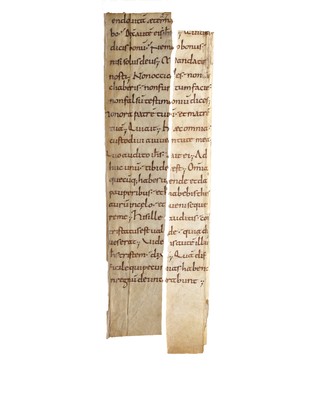 endo uitā eternā
bo· Dixit aut ei ihs
dicis bonū; Nemo bonus
nisi solus deus; Mandata
nosti; Non occides· non
chaberis· non furtum facies
non falsū testimoniū dices;
onora patrē tuū· et matrē
tuā; Qui ait; Haec omnia
custodiui a iuuentute mea;
Quo audito ihs· ait ei; Ad
huc unū tibi deest; Omnia
quecūq; habes uende et da
pauperibus· et habebis thes
aurū in celo· et ueni seque
re me; His ille auditis· con
tristatus est ualde· quia di
ues erat; Uidens aut illū
ihs tristem· dix; Quā diffi
cile qui pecunias habent
in regnū dei intrabunt;